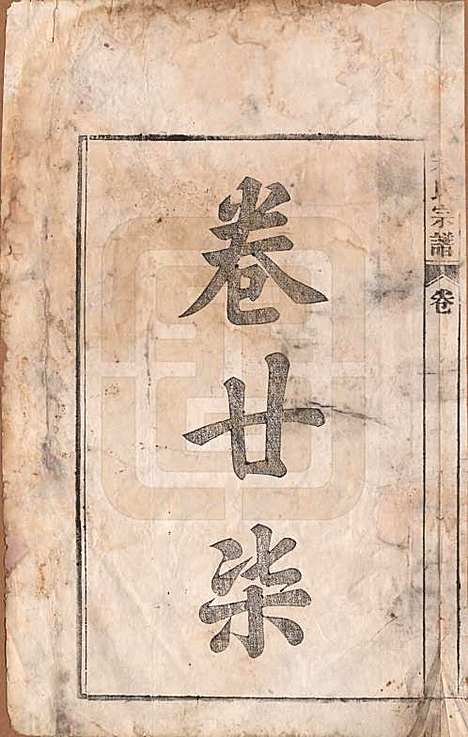 卷廿柒
氏宗譜
卷